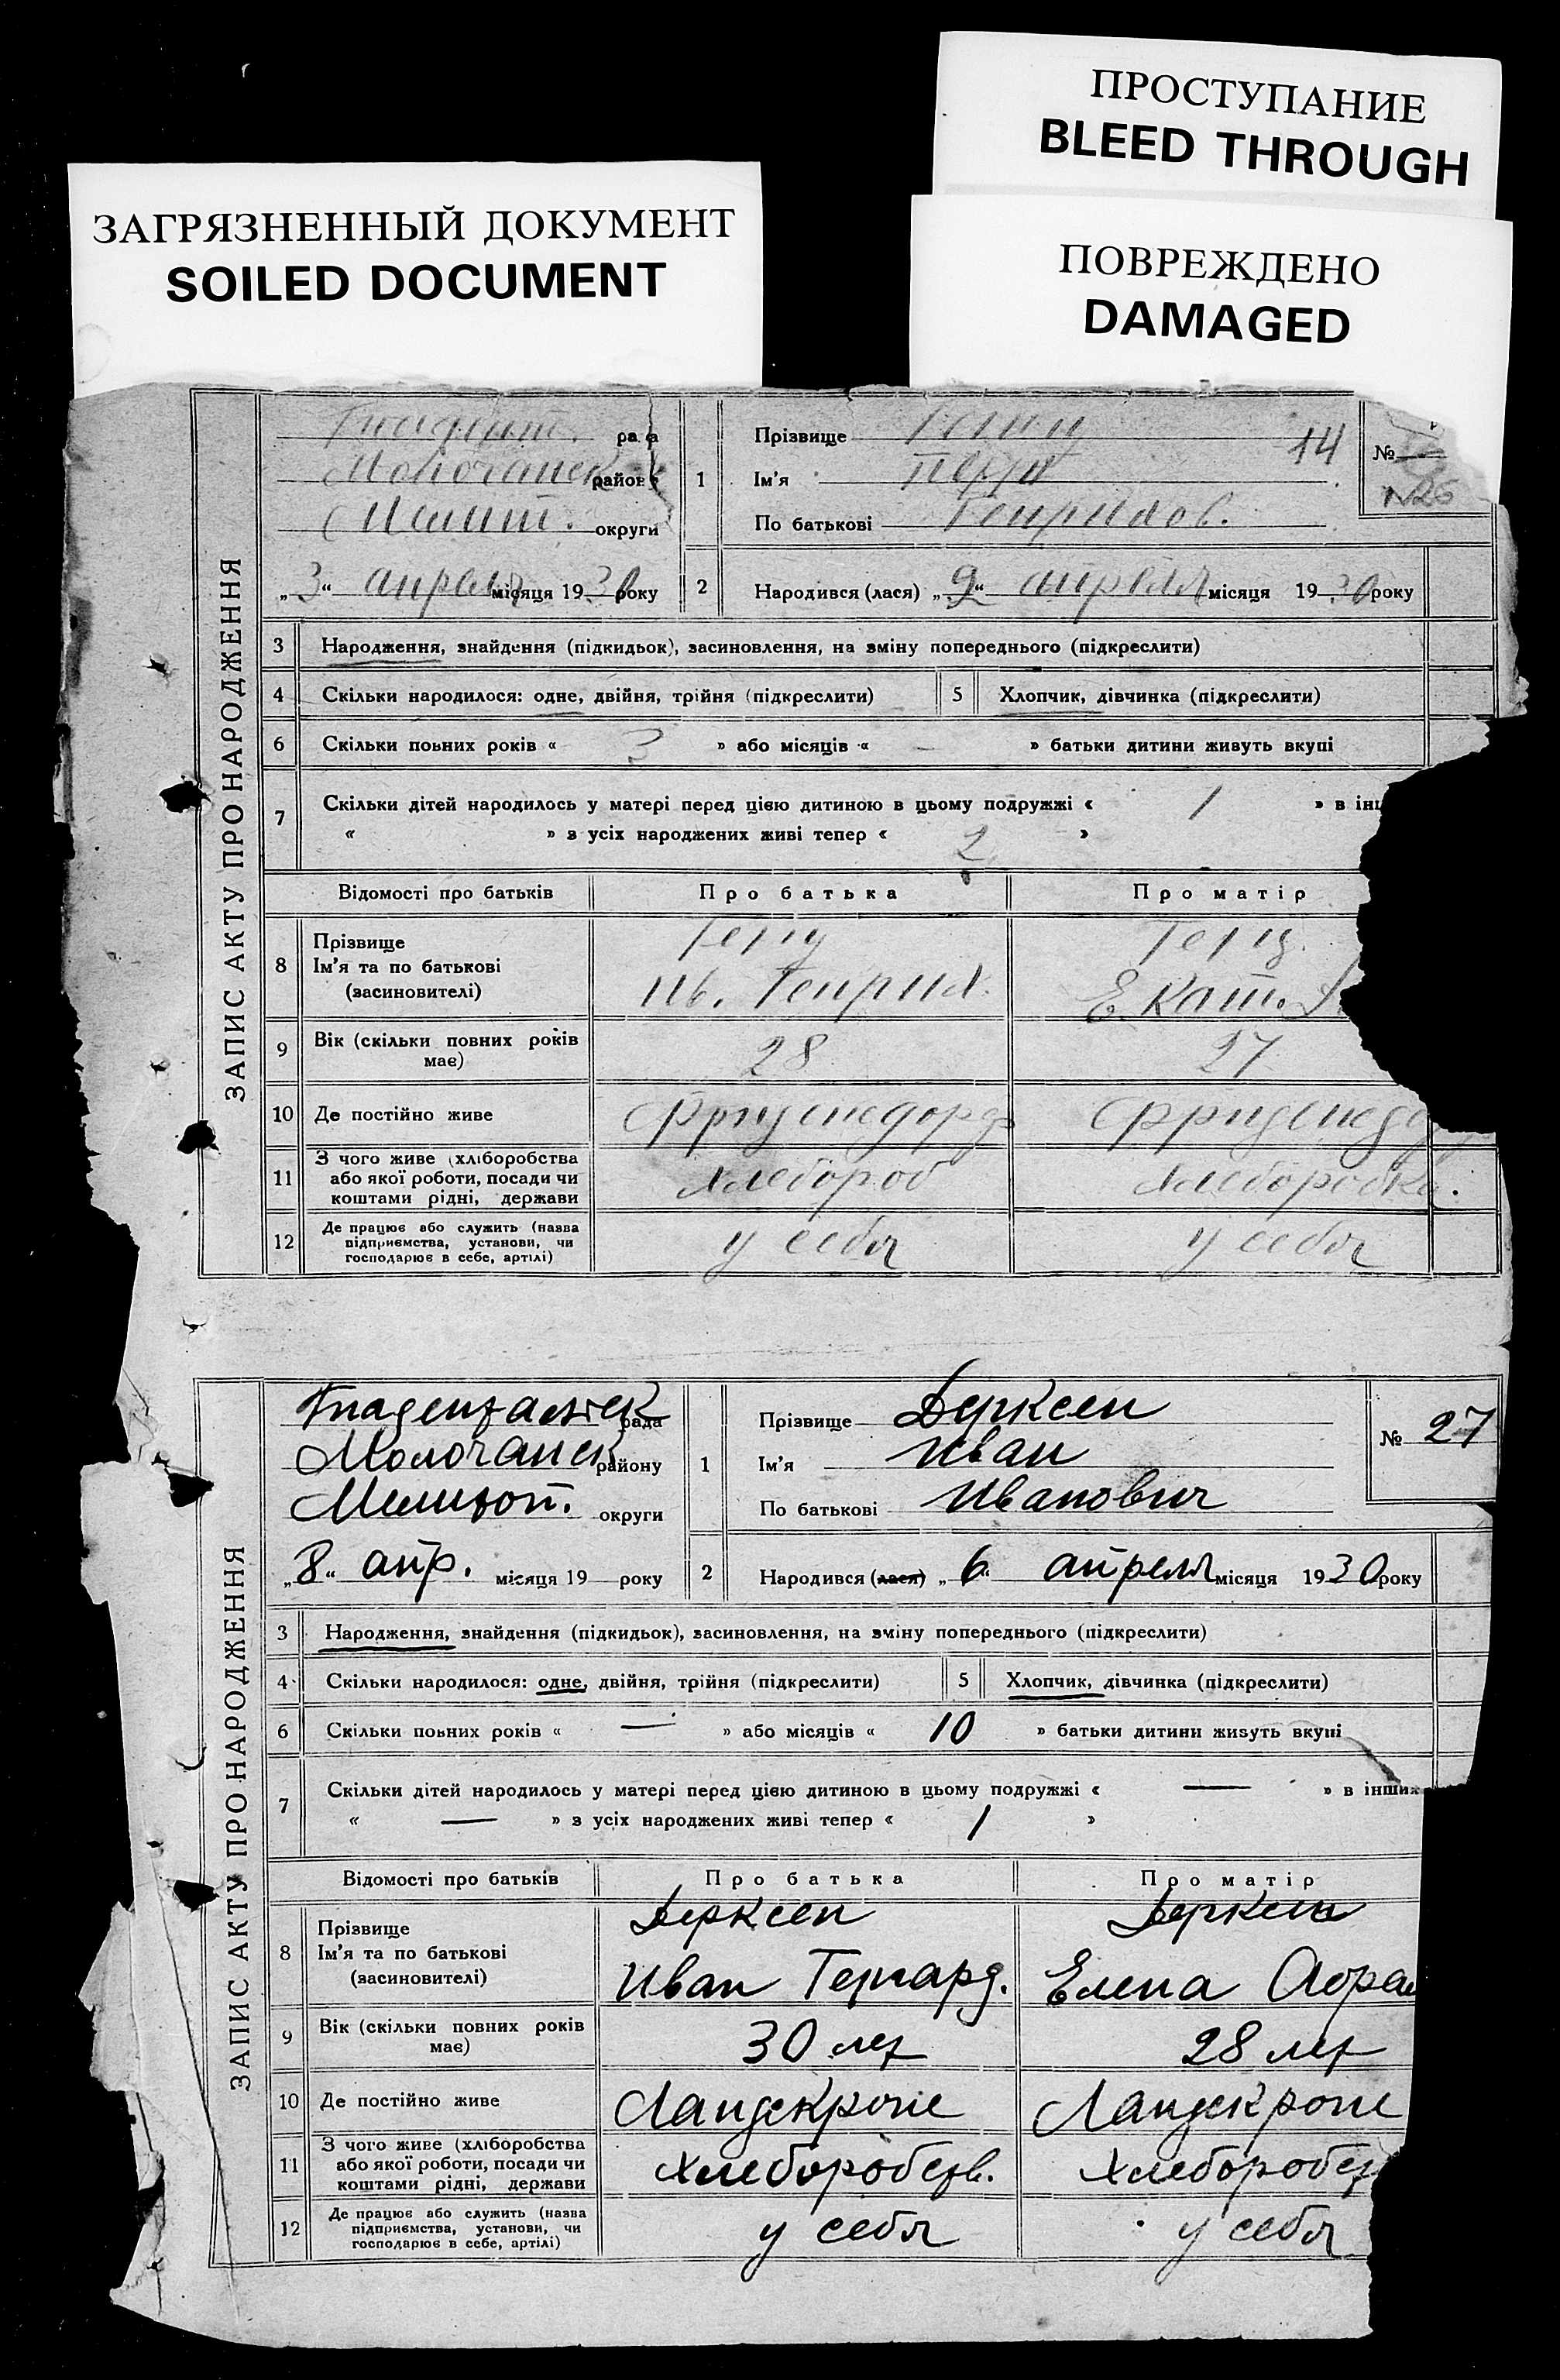 ПРОСТУПАНИЕ
BLEED THROUGH
ЗАГРЯЗНЕННЫЙ ДОКУМЕНТ
SOILED DOCUMENT
ПОВРЕЖДЕНО
DAMAGED
ЗАПИС АКТУ ПРО НАРОДЖЕННЯ
Молочанск район
округи
„3“ апреля місяця 1930 року
1
Прізвище
14
Ім'я
По батькові Генрихов.
№
N26
2
Народився (лася) „ “ апреля місяця 1930 року
3 Народження, знайдення (підкидьок), засиновлення, на зміну попереднього (підкреслити)
4 Скільки народилося: одне, двійня, трійня (підкреслити) 5 Хлопчик, дівчинка (підкреслити)
6 Скільки повних років « 3 » або місяців « – » батьки дитини живуть вкупі
7 Скільки дітей народилось у матері перед цією дитиною в цьому подружжі « 1 » в
« » з усіх народжених живі тепер « 2 »
Відомості про батьків Про батька Про матір
8 Прізвище
Ім'я та по батькові
(засиновителі)
Ив. Генрих. Екат.
9 Вік (скільки повних років має) 28 27
10 Де постійно живе Фриденсдорф
11 З чого живе (хліборобства або якої роботи, посади чи коштами рідні, держави хлебороб хлеборобка.
12 Де працює або служить (назва підприємства, установи, чи господарює в себе, артілі) у себя у себя
ЗАПИС АКТУ ПРО НАРОДЖЕННЯ
Гнаденталск рада
Молочанск району
Мелитоп. округи
„8“ апр. місяця 19 року
1
Прізвище Дерксен
Ім'я Иван
По батькові Иванович
№ 27
2
Народився (лася) „6“ апреля місяця 1930 року
3 Народження, знайдення (підкидьок), засиновлення, на зміну попереднього (підкреслити)
4 Скільки народилося: одне, двійня, трійня (підкреслити) 5 Хлопчик, дівчинка (підкреслити)
6 Скільки повних років « — » або місяців « 10 » батьки дитини живуть вкупі
7 Скільки дітей народилось у матері перед цією дитиною в цьому подружжі « — » в інших
« — » з усіх народжених живі тепер « 1 »
Відомості про батьків Про батька Про матір
8 Прізвище Дерксен Дерксен
Ім'я та по батькові
(засиновителі)
Иван Гергард. Елена Абрам
9 Вік (скільки повних років має) 30 лет 28 лет
10 Де постійно живе Ландскроне Ландскроне
11 З чого живе (хліборобства або якої роботи, посади чи коштами рідні, держави Хлеборобств. Хлеборобст
12 Де працює або служить (назва підприємства, установи, чи господарює в себе, артілі) у себя у себя